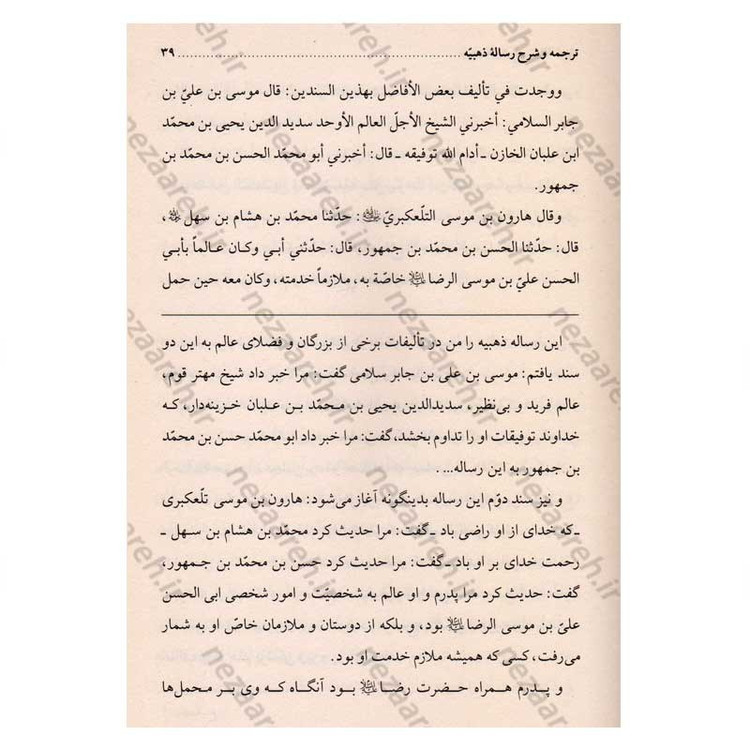 ترجمه و شرح رسالهٔ ذهبیّه ........................................ ۳۹
ووجدت في تأليف بعض الأفاضل بهذين السندين: قال موسى بن عليّ بن
جابر السلامي: أخبرني الشيخ الأجلّ العالم الأوحد سديد الدين يحيى بن محمّد
ابن علبان الخازن ـ أدام الله توفيقه ـ قال: أخبرني أبو محمّد الحسن بن محمّد بن
جمهور.
وقال هارون بن موسى التلّعكبريّ: حدّثنا محمّد بن هشام بن سهل،
قال: حدّثنا الحسن بن محمّد بن جمهور، قال: حدّثني أبي وكان عالماً بأبي
الحسن عليّ بن موسى الرضا خاصّة به، ملازماً خدمته، وكان معه حين حمل
این رساله ذهبیه را من در تألیفات برخی از بزرگان و فضلای عالم به این دو
سند یافتم: موسی بن علی بن جابر سلامی گفت: مرا خبر داد شیخ مهتر قوم،
عالم فرید و بی‌نظیر، سدیدالدین یحیی بن محمّد بن علبان خزینه‌دار، که
خداوند توفیقات او را تداوم بخشد، گفت: مرا خبر داد ابو محمّد حسن بن محمّد
بن جمهور به این رساله... .
و نیز سند دوّم این رساله بدینگونه آغاز می‌شود: هارون بن موسی تلّعکبری
ـ که خدای از او راضی باد ـ گفت: مرا حدیث کرد محمّد بن هشام بن سهل ـ
رحمت خدای بر او باد ـ گفت: مرا حدیث کرد حسن بن محمّد بن جمهور،
گفت: حدیث کرد مرا پدرم و او عالم به شخصیّت و امور شخصی ابی الحسن
علیّ بن موسی الرضا بود، و بلکه از دوستان و ملازمان خاصّ او به شمار
می‌رفت، کسی که همیشه ملازم خدمت او بود.
و پدرم همراه حضرت رضا بود آنگاه که وی بر محمل‌ها
nezaareh.ir